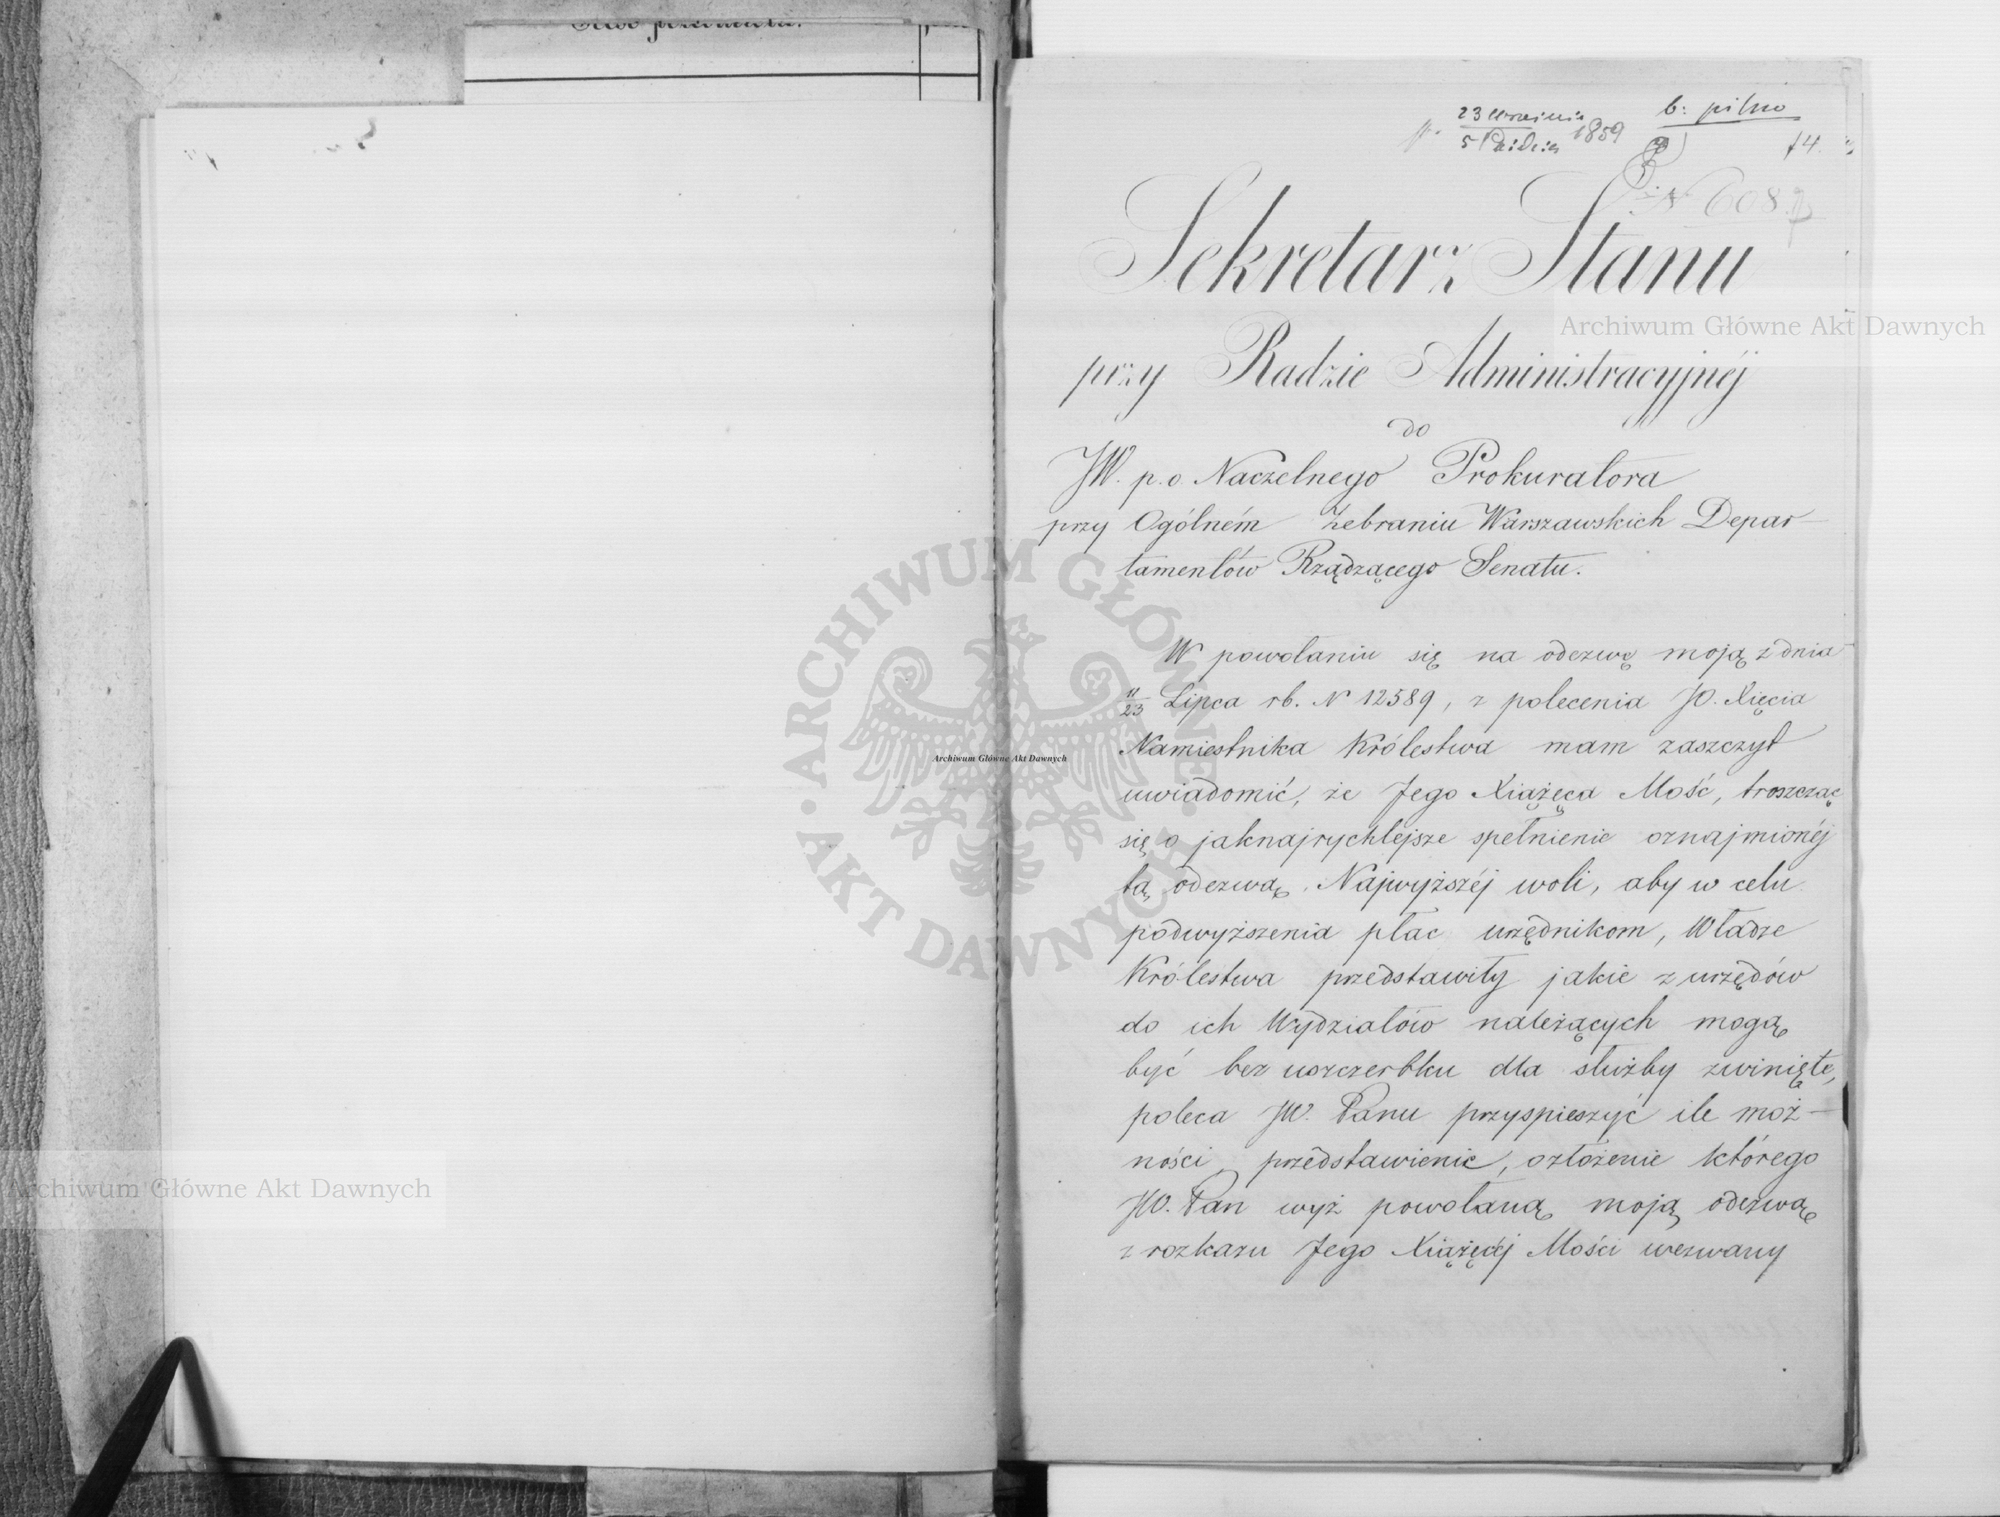 p. 23 Września
5 Paździer 1859
b: pilno
14.
N 6087
Sekretarz Stanu
przy Radzie Administracyjnéj
do
JW. p.o. Naczelnego Prokuratora
przy Ogólném Zebraniu Warszawskich Depar-
tamentów Rządzącego Senatu.
W powołaniu się na odezwę moją z dnia
11/23 Lipca rb. N 12589, z polecenia JO. Xięcia
Namiestnika Królestwa mam zaszczyt
uwiadomić, że Jego Xiążęca Mość, troszcząc
się o jaknajrychlejsze spełnienie oznajmionéj
tą odezwą Najwyższéj woli, aby w celu
podwyższenia płac urzędnikom, Władze
Królestwa przedstawiły jakie z urzędów
do ich Wydziałów należących mogą
być bez uszczerbku dla służby zwinięte,
poleca JW. Panu przyspieszyć ile moż-
ności przedstawienie, o złożenie którego
JW. Pan wyż powołaną moją odezwą
z rozkazu Jego Xiążęcéj Mości wezwany
Archiwum Główne Akt Dawnych
Archiwum Główne Akt Dawnych
Archiwum Główne Akt Dawnych
ARCHIWUM GŁÓWNE · AKT DAWNYCH ·